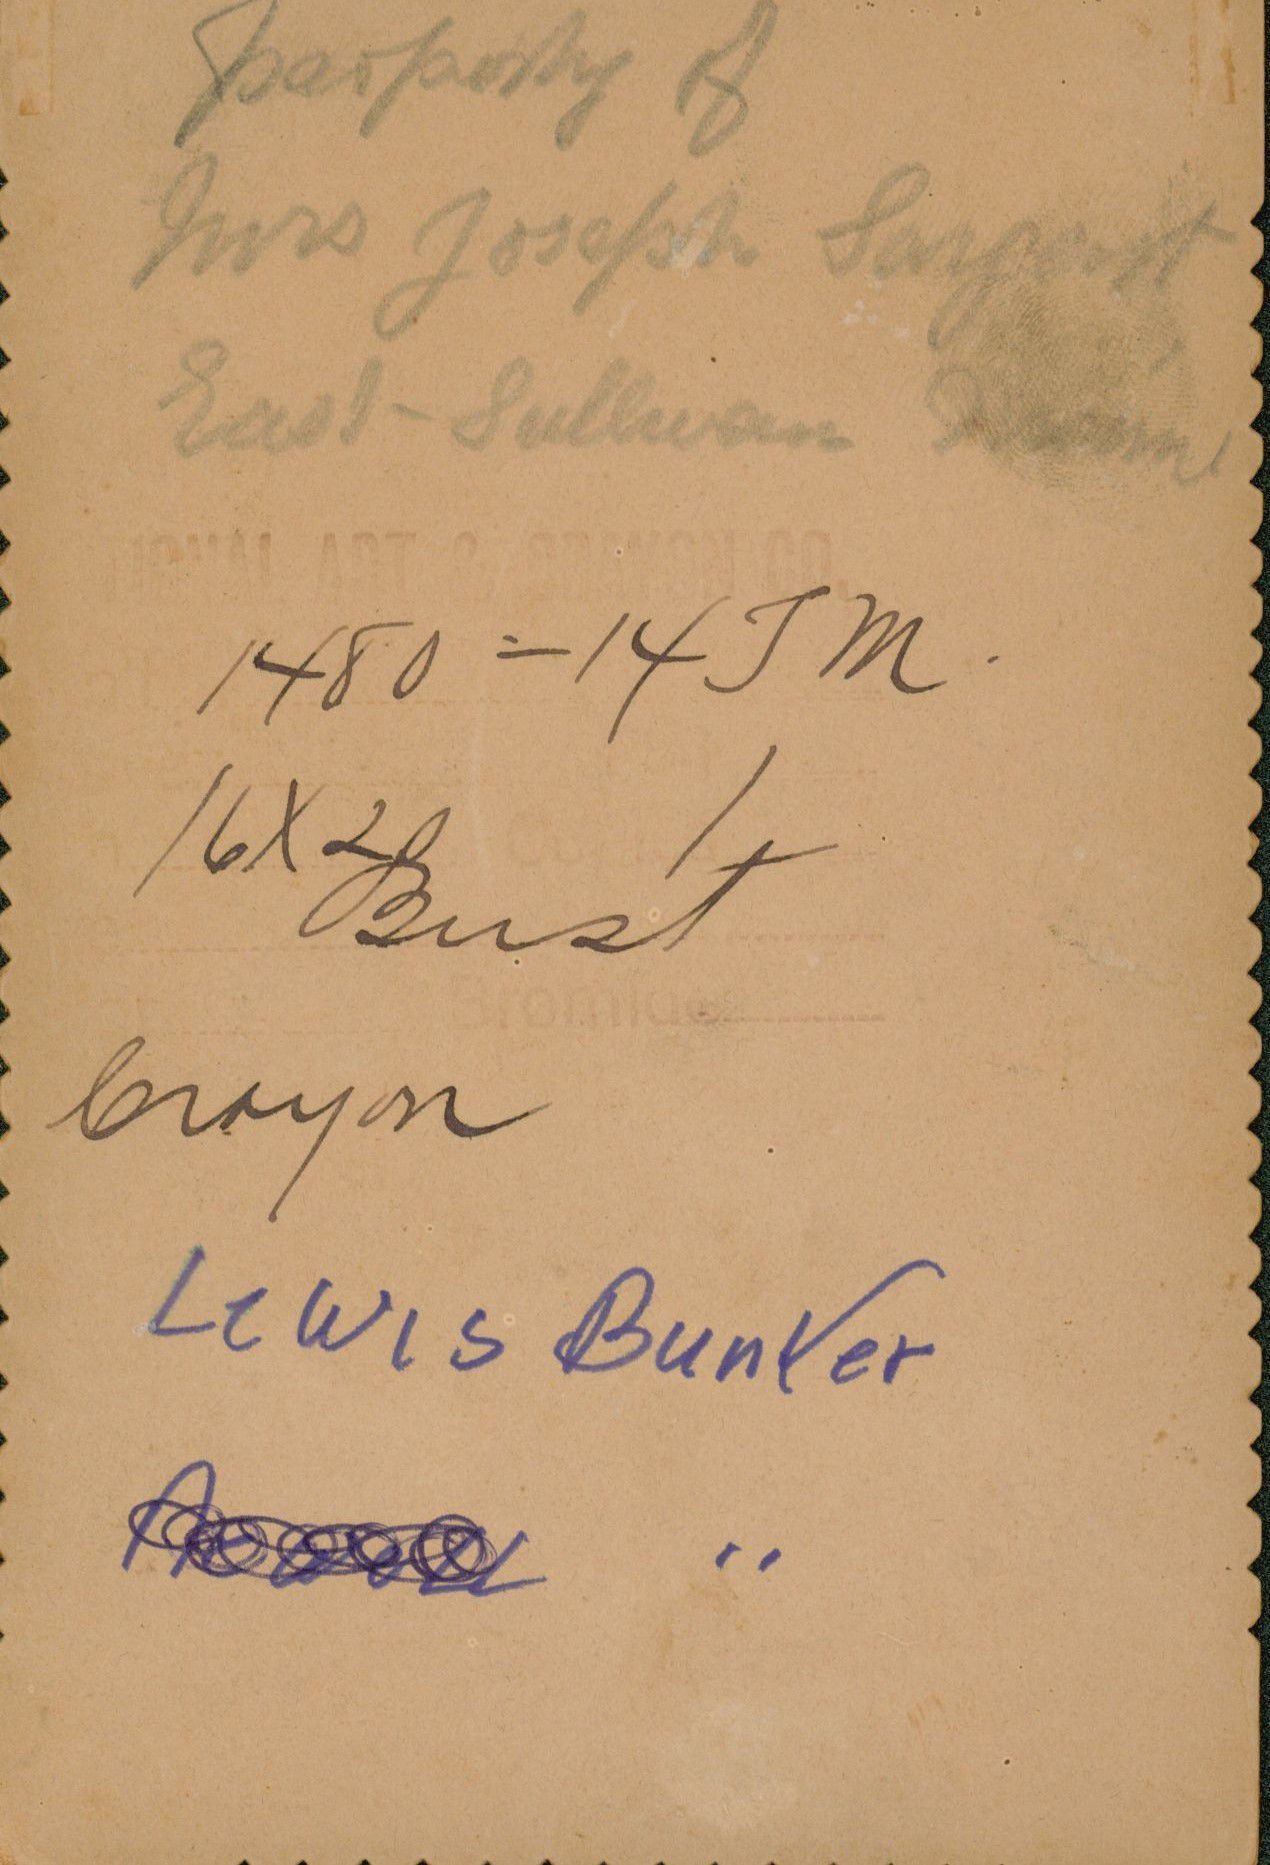 parporty of
Mrs Joseph Sargent
East-Sullivan
1480 = 14 J M.
16X20 1
Bust
Crayon
Lewis Bunker
"